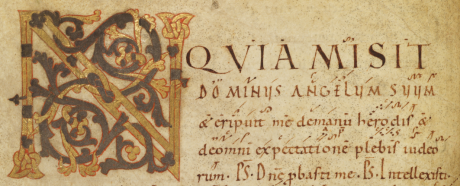 N QVIA MISIT
DOMINUS ANGELUM SUUM
& eripuit me demanu herodis &
deomni expectatione plebis iudeo
rum. PS. Dn̄e p̱basti me. PS. Intellexisti